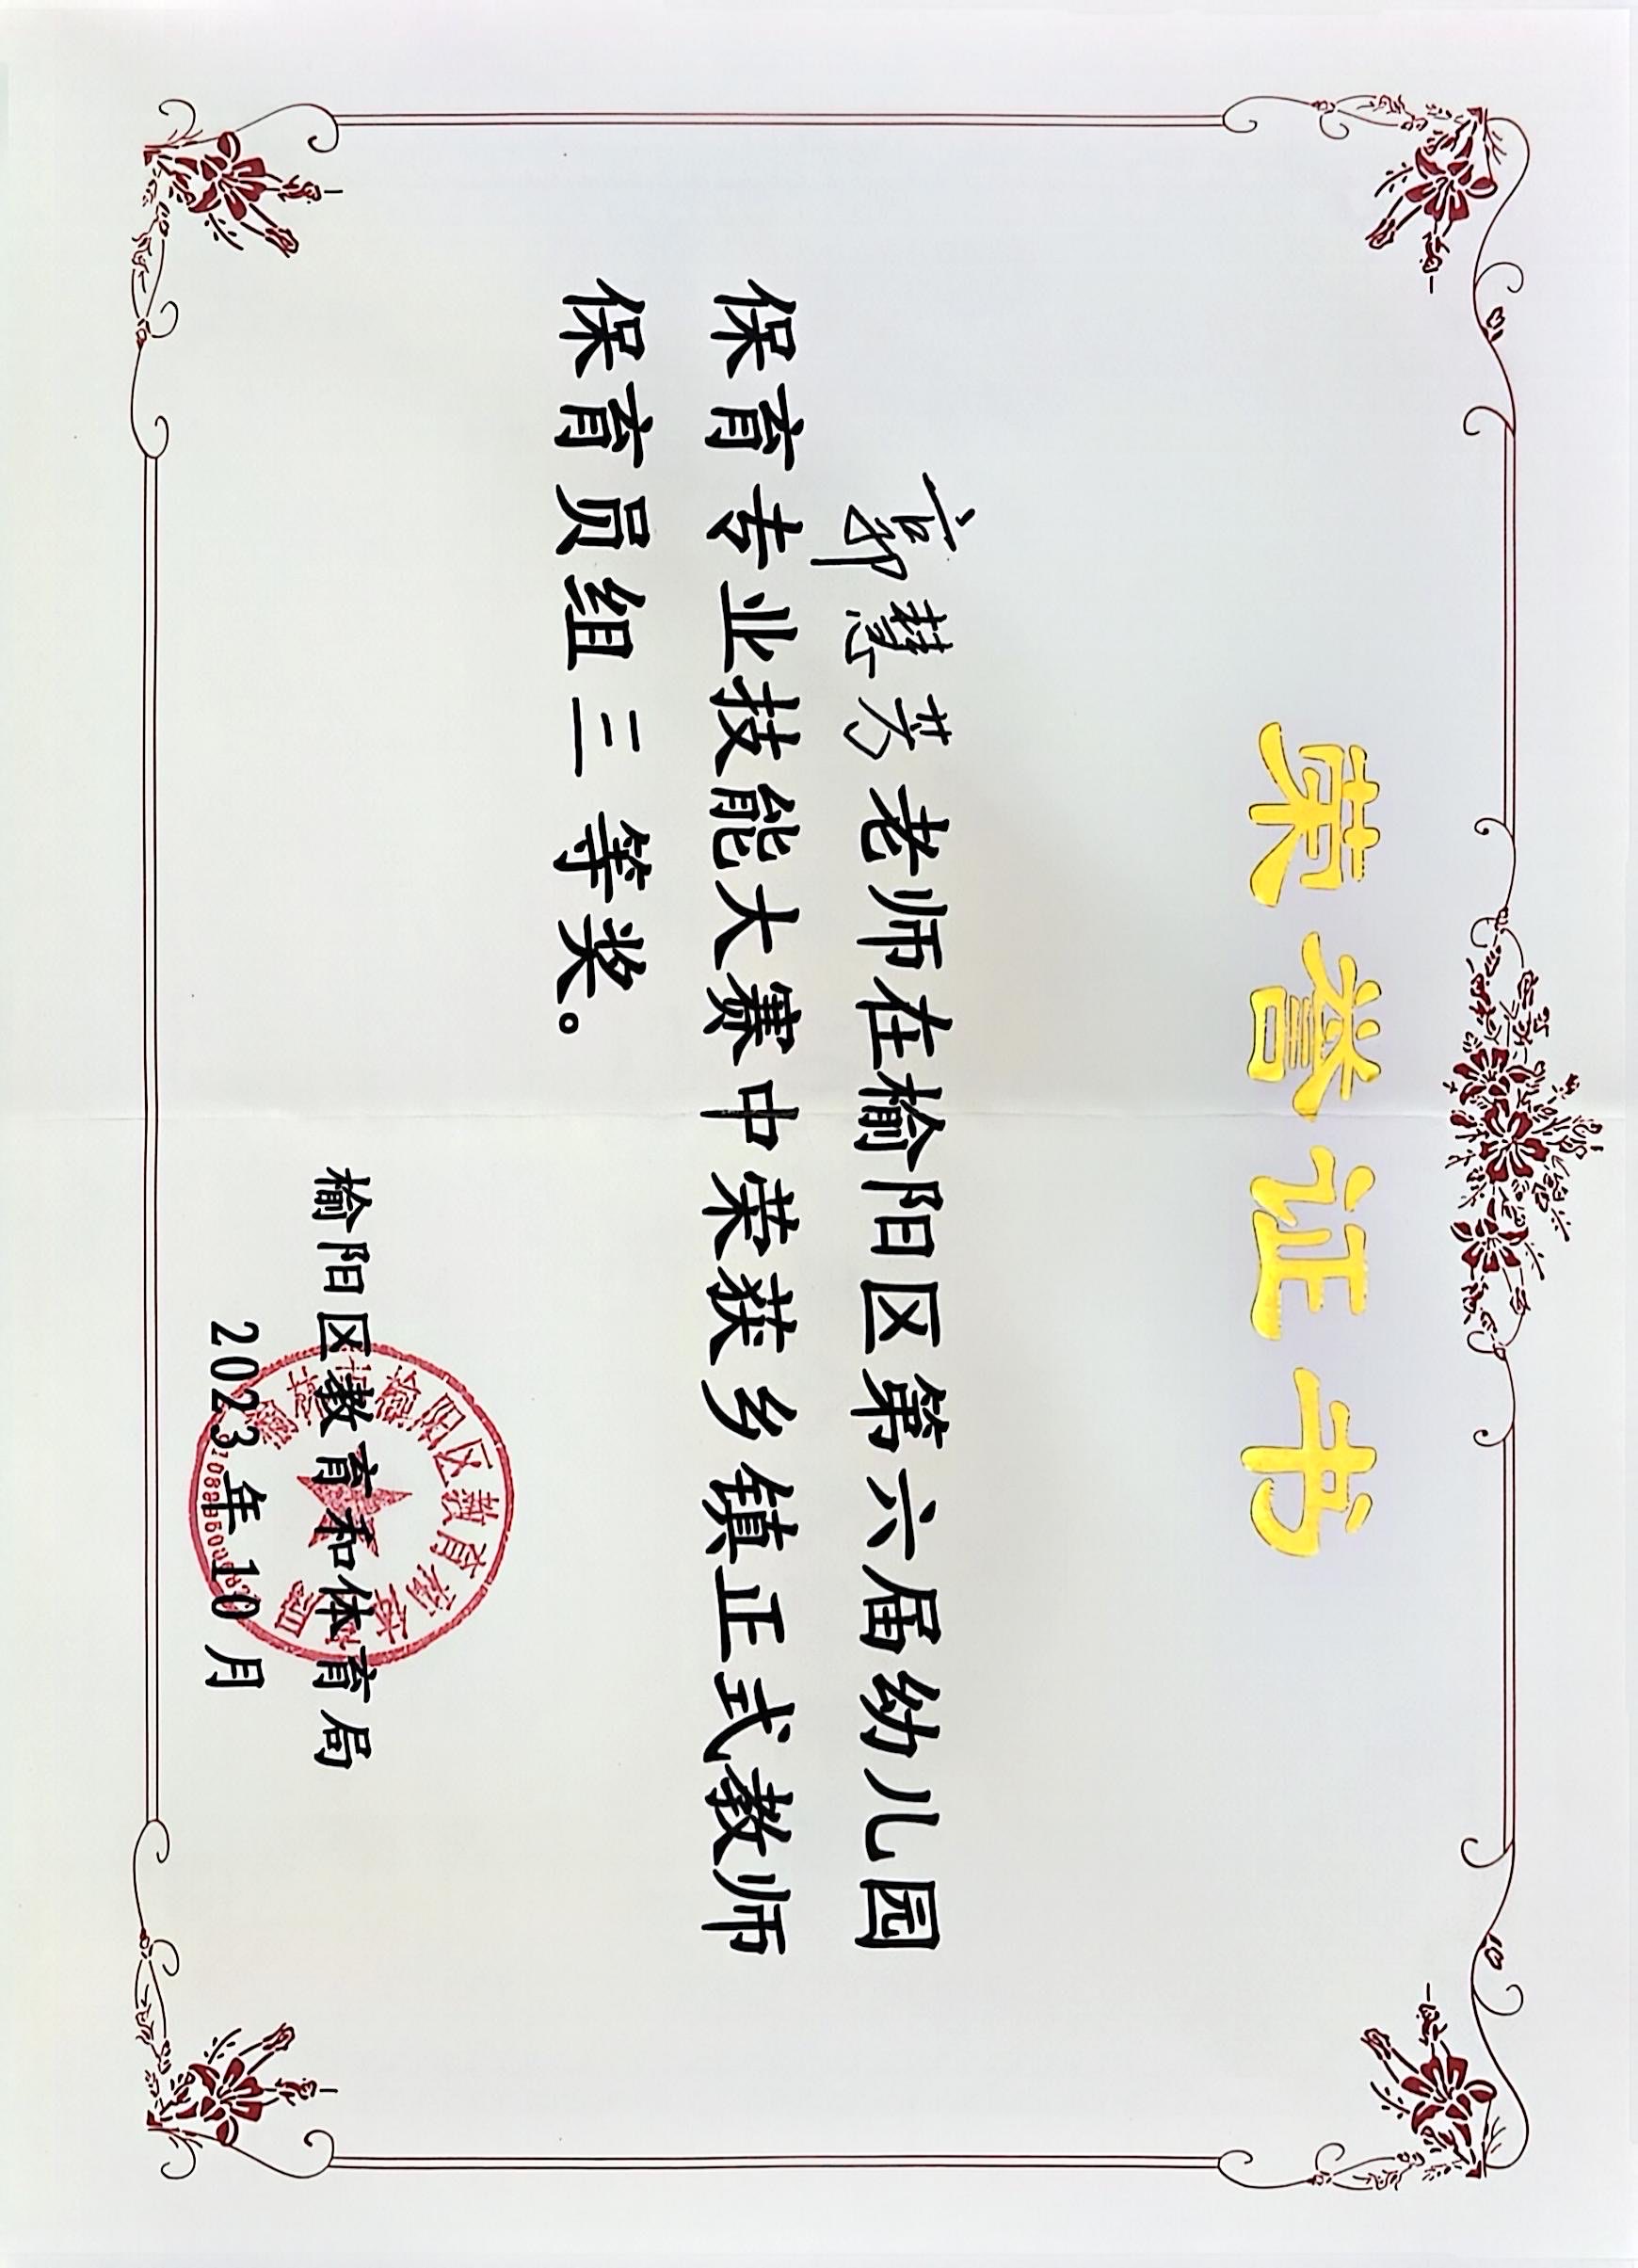 荣誉证书
郭慧芳老师在榆阳区第六届幼儿园
保育专业技能大赛中荣获乡镇正式教师
保育员组三等奖。
榆阳区教育和体育局
2023年10月